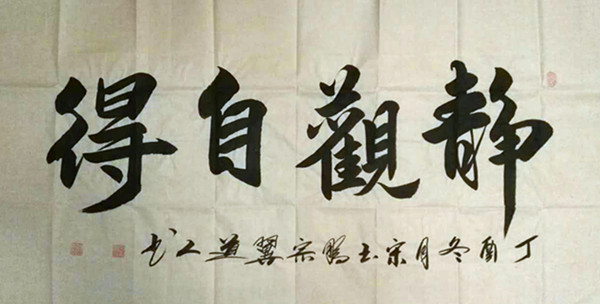 静觀自得
丁酉冬月宋玉鹏宗翼道人书